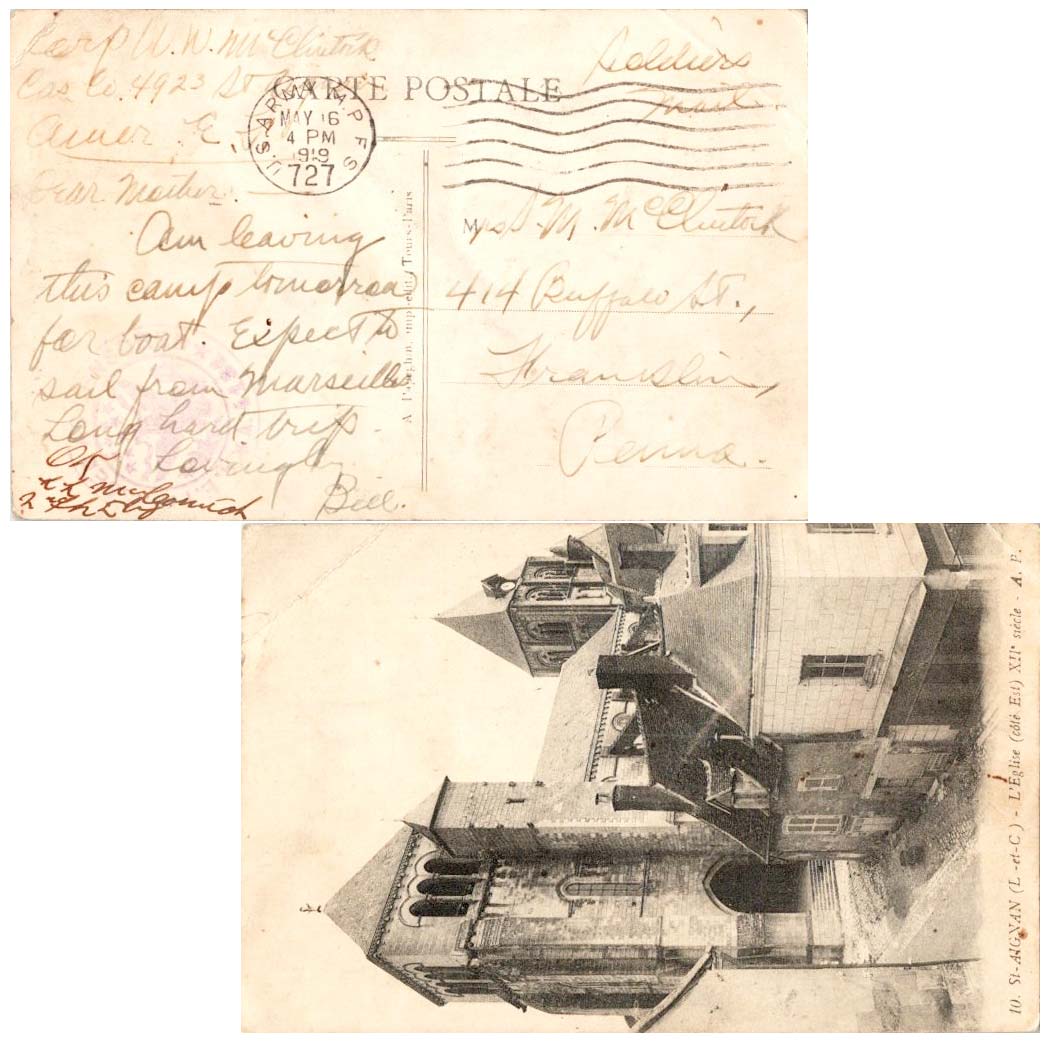 Corp W. W. McClintock
Cas Co. 4923 St
Amer. E.
CARTE POSTALE
Soldiers
Mail.
U.S. ARMY M.P.E.S.
MAY 16
4 PM
1919
727
Dear Mother.
Am leaving
this camp tomorrow
for boat. Expect to
sail from Marseilles
Long hard trip.
Lovingly
Bill.
OK
Mrs. M. McClintock
414 Buffalo St.,
Franklin,
Penna.
10. St-AIGNAN (L.-et-C.) - L'Eglise (côté Est) XIIe siècle - A. P.